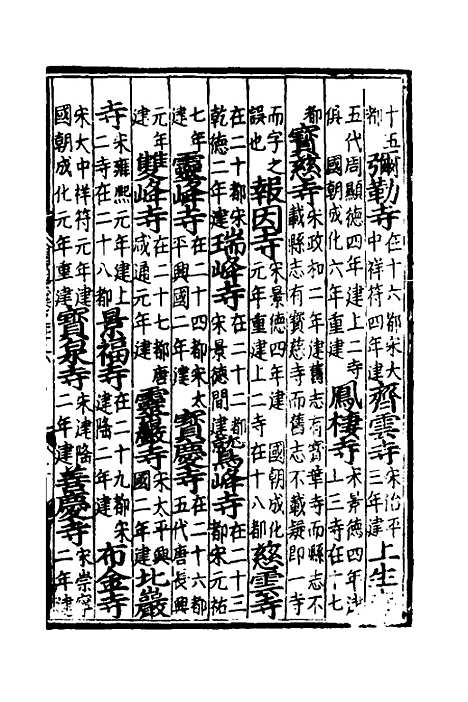 十五都彌勒寺在十六都宋大中祥符四年建齊雲寺宋治平三年建上生
五代周顯德四年建上二寺俱國朝成化六年重建鳳棲寺宋景德四年建上三寺在十七
都寶慈寺宋政和二年建舊志有齊華寺而縣志不載縣志有寶慈寺而舊志不載疑即一寺
而字之誤也報因寺宋景德四年建國朝成化元年重建上二寺在十八都慈雲寺
在二十都宋乾德二年建瑞峰寺在二十二都宋景德間建鷲峰寺在二十三都宋元祐
七年建靈峰寺在二十四都宋太平興國二年建寶慶寺在二十六都五代唐長興
元年建雙峰寺在二十七都唐咸通元年建靈巖寺宋太平興國二年建北巖
寺宋雍熙元年建上二寺在二十八都景福寺在二十九都宋建隆二年建布金寺
宋大中祥符元年建國朝成化元年重建寶泉寺宋建隆二年建善慶寺宋崇寧二年建